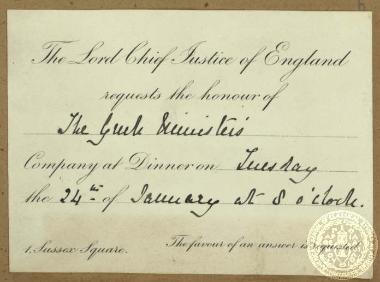 The Lord Chief Justice of England
requests the honour of
The Greek Minister's
Company at Dinner on Tuesday
the 24th of January at 8 o'clock.
1, Sussex Square. The favour of an answer is requested